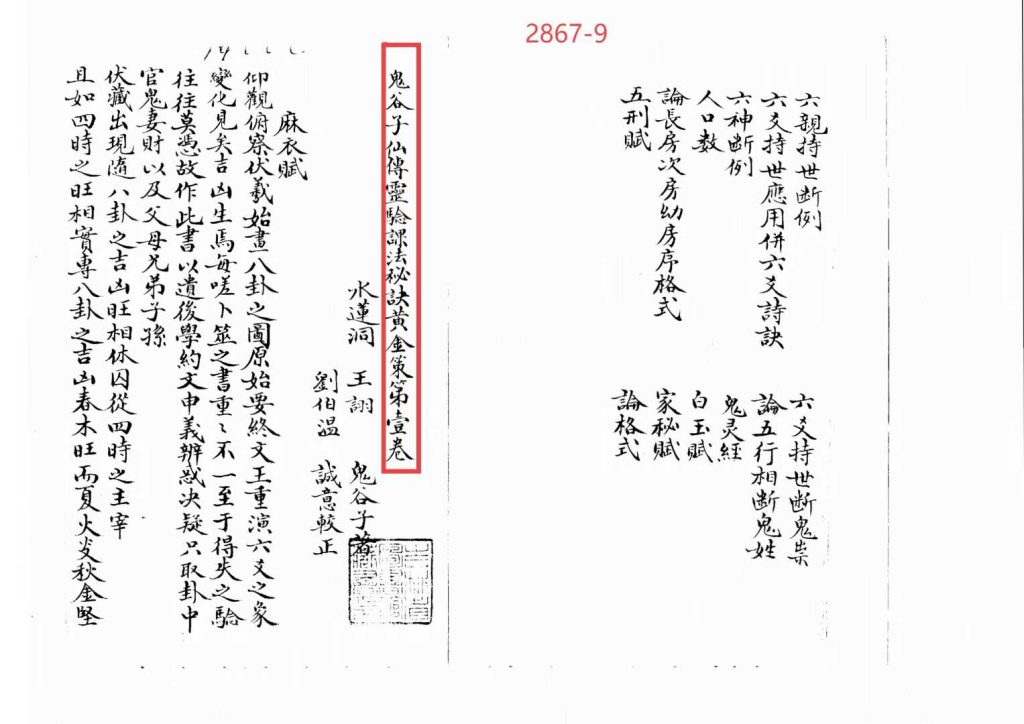 2867-9
六親持世断例
六爻持世断鬼祟
六爻持世應用併六爻詩訣
論五行相断鬼姓
六神断例
鬼灵經
人口数
白玉賦
論長房次房幼房序格式
家秘賦
五刑賦
論格式
鬼谷子仙傳靈驗課法秘訣黄金策第壹卷
水蓮洞 王詡 鬼谷子著
劉伯温 誠意較正
麻衣賦
仰觀俯察伏羲始畫八卦之圖原始要終文王重演六爻之象
變化見矣吉凶生焉每嗟卜筮之書重〻不一至于得失之驗
往往莫憑故作此書以遺後學約文申義辨惑决疑只取卦中
官鬼妻財以及父母兄弟子孫
伏藏出現隨八卦之吉凶旺相休囚從四時之主宰
且如四時之旺相實專八卦之吉凶春木旺而夏火炎秋金堅